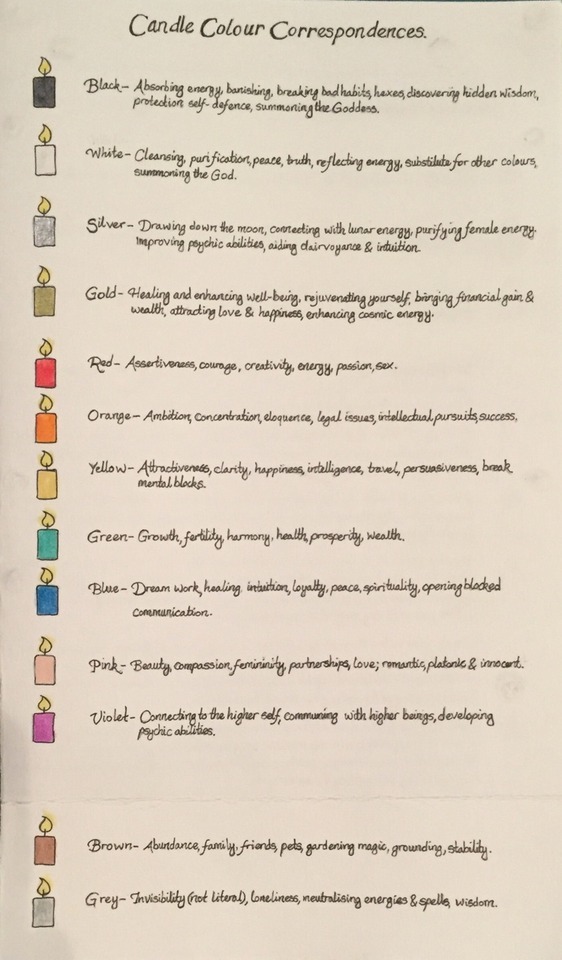 Candle Colour Correspondences.
Black- Absorbing energy, banishing, breaking bad habits, hexes, discovering hidden wisdom,
protection self-defence, summoning the Goddess.
White- Cleansing, purification, peace, truth, reflecting energy, substitute for other colours,
summoning the God.
Silver- Drawing down the moon, connecting with lunar energy, purifying female energy.
Improving psychic abilities, aiding clairvoyance & intuition.
Gold- Healing and enhancing well-being, rejuvenating yourself, bringing financial gain &
wealth, attracting love & happiness, enhancing cosmic energy.
Red- Assertiveness, courage, creativity, energy, passion, sex.
Orange- Ambition, concentration, eloquence, legal issues, intellectual pursuits, success.
Yellow- Attractiveness, clarity, happiness, intelligence, travel, persuasiveness, break
mental blocks.
Green- Growth, fertility, harmony, health, prosperity, wealth.
Blue- Dream work, healing, intuition, loyalty, peace, spirituality, opening blocked
communication.
Pink- Beauty, compassion, femininity, partnerships, love; romantic, platonic & innocent.
Violet- Connecting to the higher self, communing with higher beings, developing
psychic abilities.
Brown- Abundance, family, friends, pets, gardening magic, grounding, stability.
Grey- Invisibility (not literal), loneliness, neutralising energies & spells, wisdom.